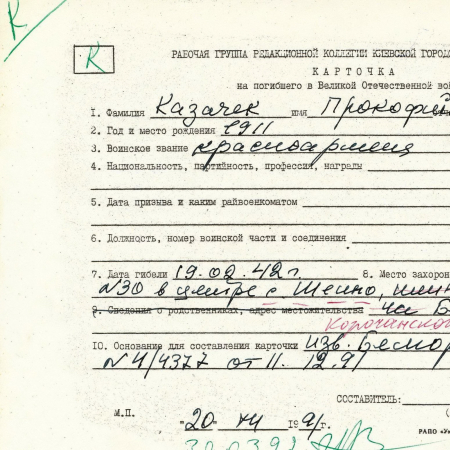 К
К
РАБОЧАЯ ГРУППА РЕДАКЦИОННОЙ КОЛЛЕГИИ КИЕВСКОЙ ГОРО
КАРТОЧКА
на погибшего в Великой Отечественной во
1. Фамилия Казачек имя Прокофий
2. Год и место рождения 1911
3. Воинское звание красноармеец
4. Национальность, партийность, профессия, награды
5. Дата призыва и каким райвоенкоматом
6. Должность, номер воинской части и соединения
7. Дата гибели 19.02.42г. 8. Место захорон
№30 в центре с. Шеино,
9. Сведения о родственниках, адрес местожительства
Корочанской
10. Основание для составления карточки изв. Белгор
№4/4377 от 11.12.91
СОСТАВИТЕЛЬ:
М.П.
"20" XII 1991г.
РАПО «Ук